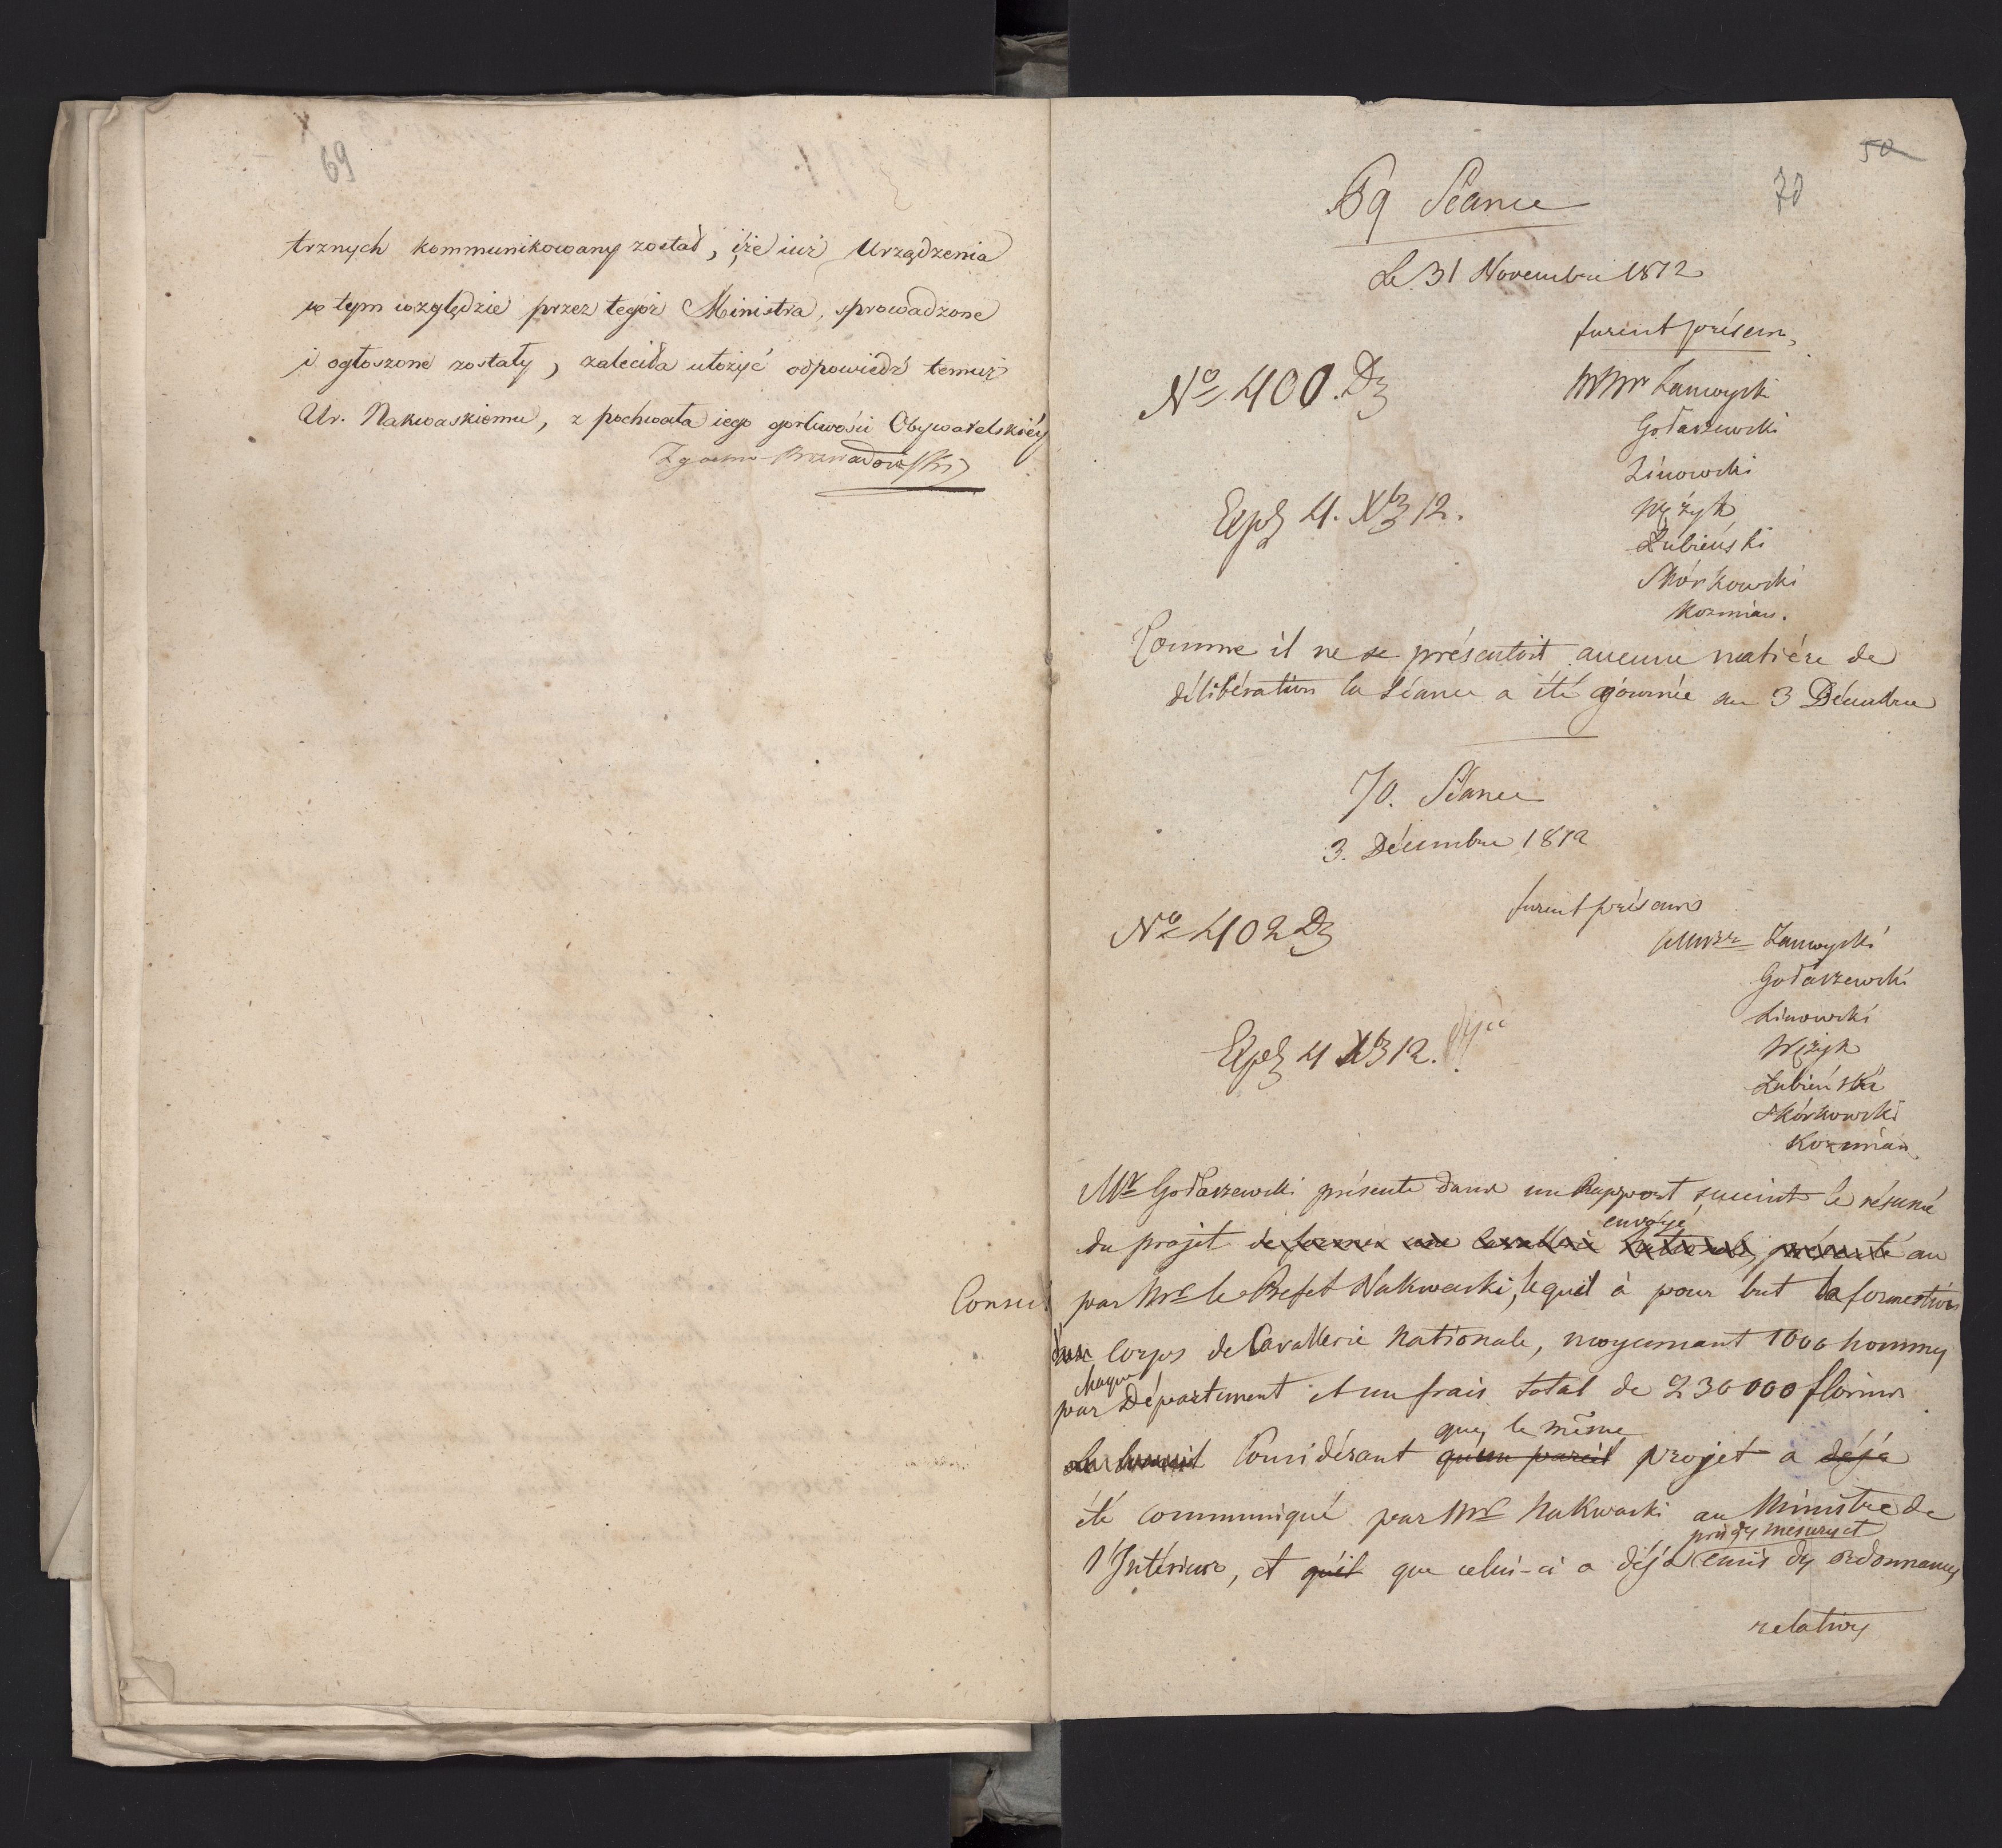 69
trznych kommunikowany został, iże iuż Urządzenia
w tym względzie przez tegoż Ministra, sprowadzone
i ogłoszone zostały, zaleciła ułożyć odpowiedź temuż
Ur. Nakwaskiemu, z pochwałą iego gorliwości Obywatelskiéy
50
70
69 Séance
Le 31 Novembre 1812
furent présens
No 400. Dz
MMrs Zamoyski
Gołaszewski
Linowski
Wężyk
Expd 4. Xb 12.
Łubieński
Skórkowski
Kozmian.
Comme il ne se présentoit aucune matiére de
délibération la Séance a été ajournée au 3 Décembre
70. Séance
3. Décembre 1812
furent présens
No 402 Dz
MMrs Zamoyski
Gołaszewski
Linowski
Expd 4 Xb 12.
Wężyk
Łubieński
Skórkowski
Kozmian
Mr Gołaszewski présente dans un Rapport succint le résumé
envoyé
du projet de former une Cavallerie Nationale, présenté au
Conseil par Mr le Prefet Nakwaski, lequel à pour but la formation
Corps de Cavallerie Nationale, moyennant 1000 hommes
chaque
par Département et un frais total de 230000 florins
que, le même
Considérant qu'un pareil projet a déjà
été communiqué par Mr Nakwaski au Ministre de
pris des mesures et
l'Intérieur, et qu'il que celui-ci a déjà émis des ordonnances
relatives